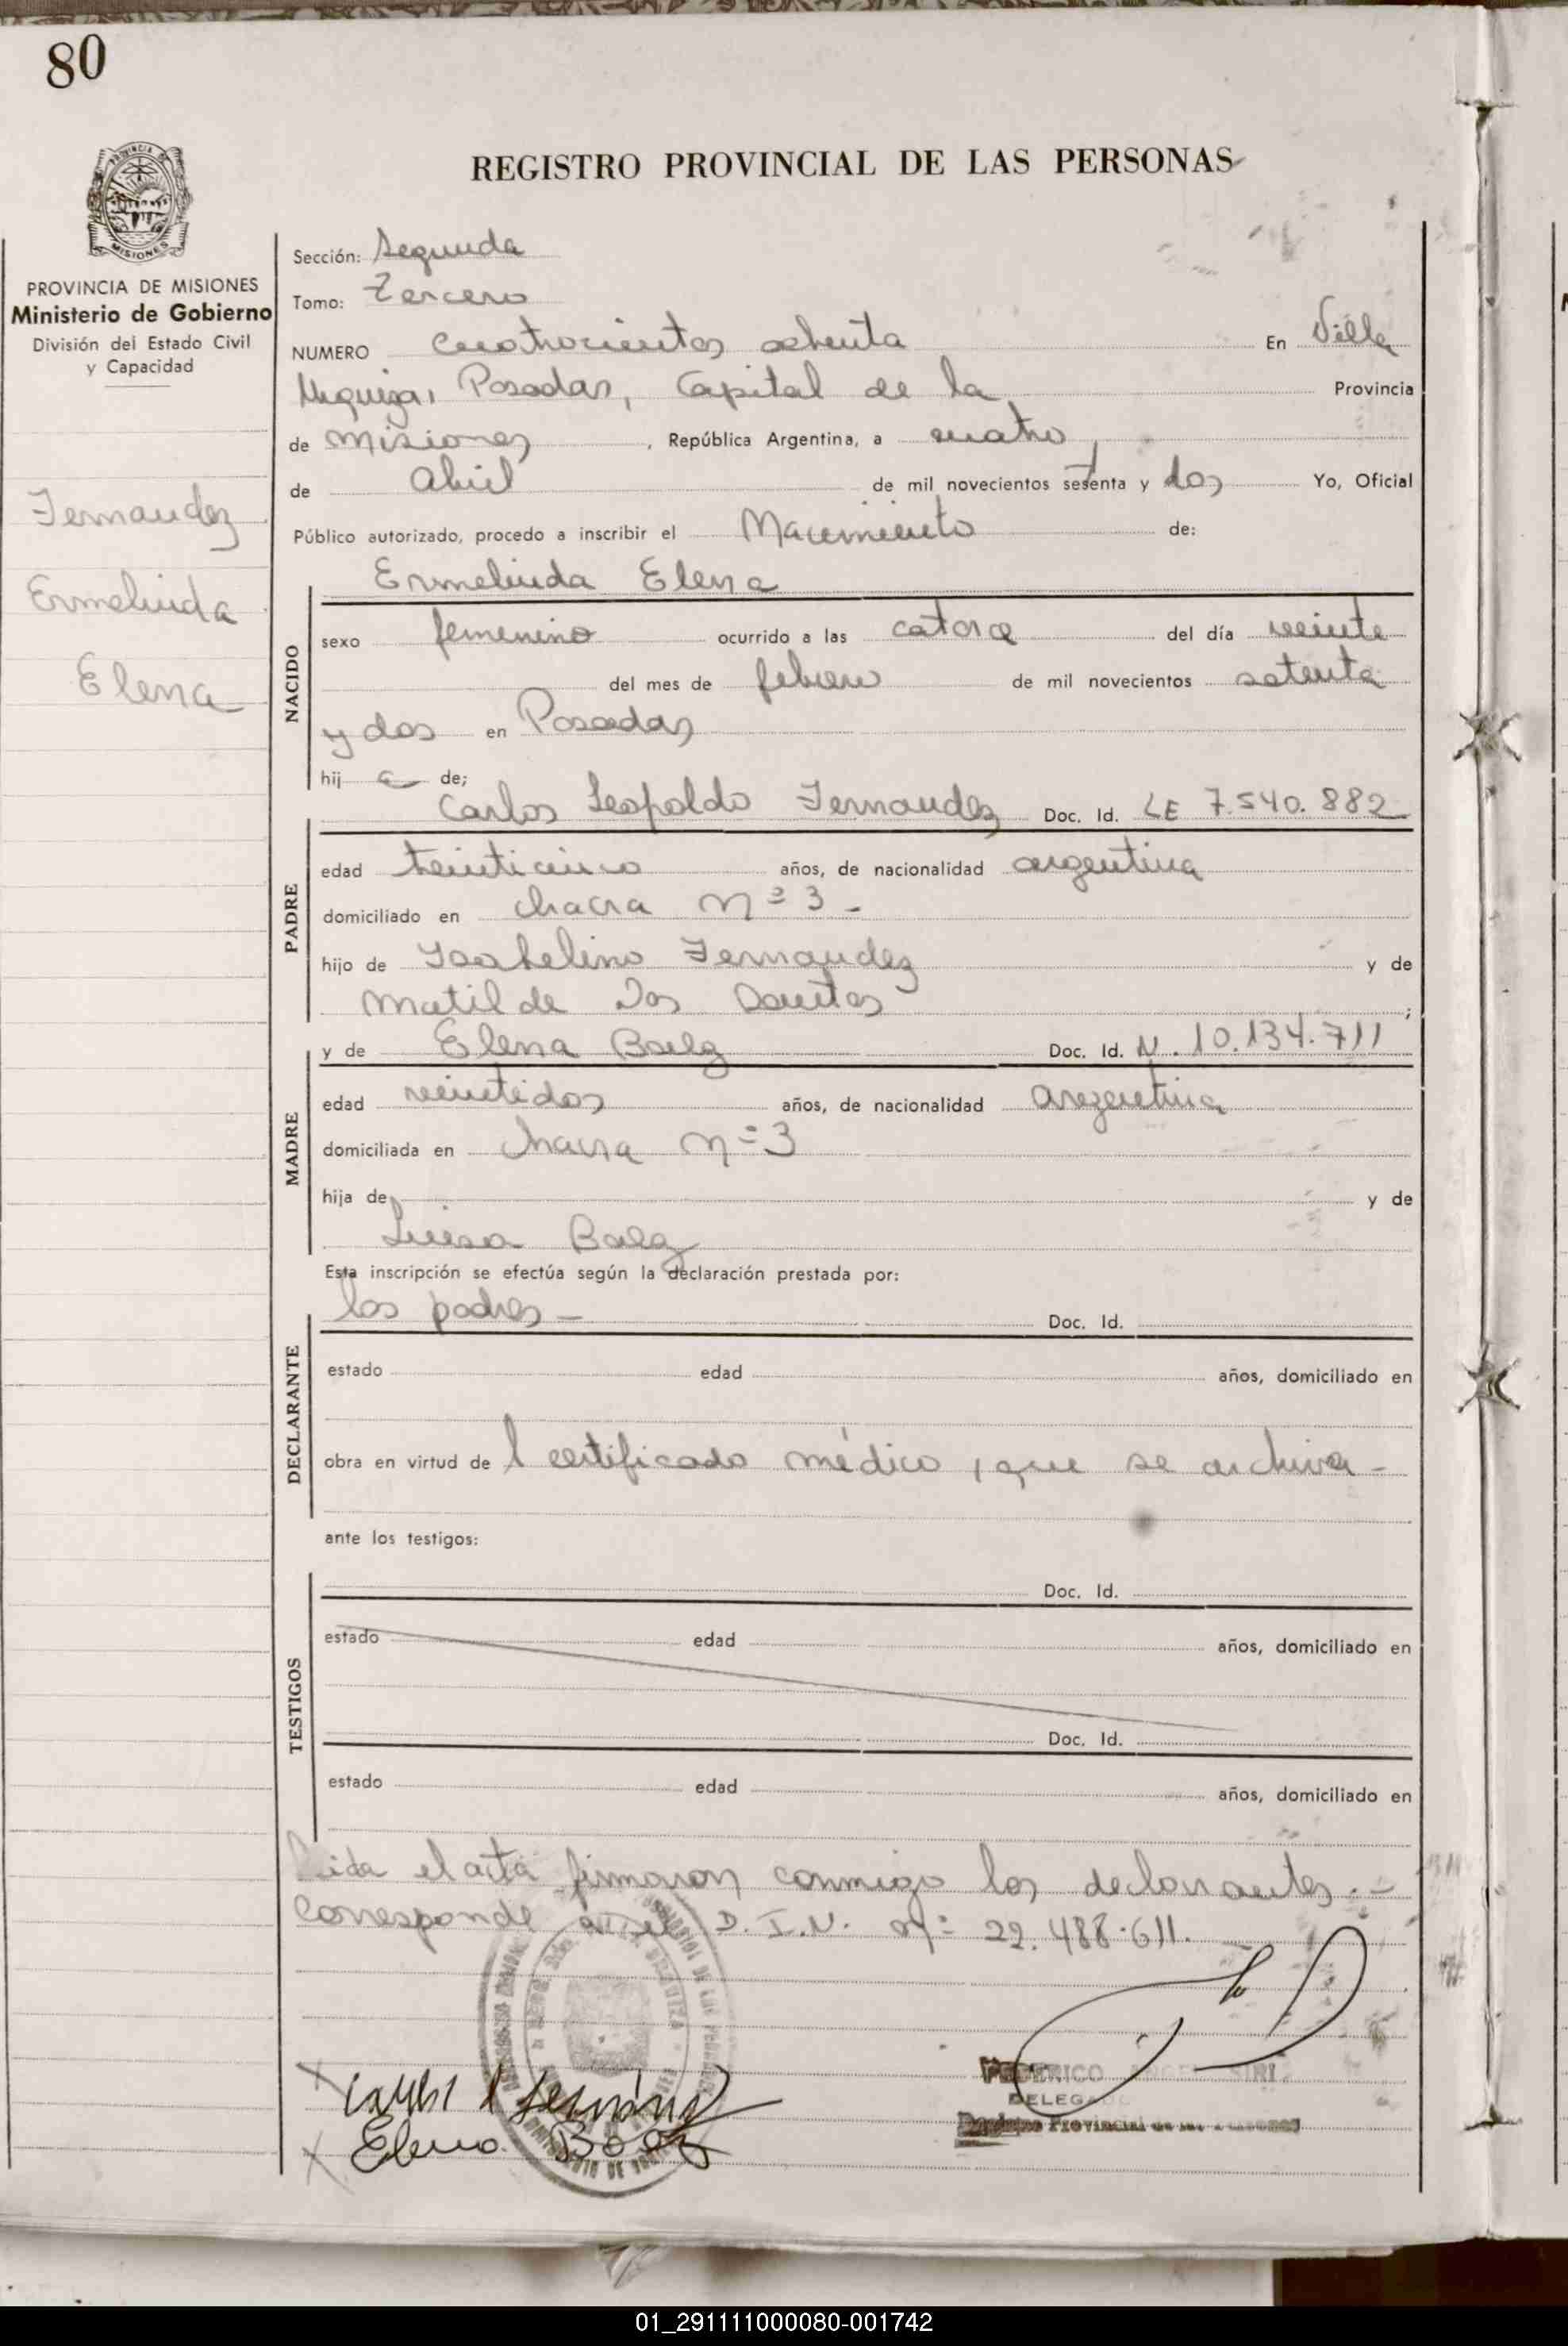 80
REGISTRO PROVINCIAL DE LAS PERSONAS
PROVINCIA DE MISIONES
Ministerio de Gobierno
División del Estado Civil
y Capacidad
Fernandez
Ermelinda
Elena
Sección: Segunda
Tomo: Tercero
NUMERO Cuatrocientos ochenta En Villa
Urquiza, Posadas, Capital de la Provincia
de Misiones, República Argentina, a cuatro
de Abril de mil novecientos setenta y dos Yo, Oficial
Público autorizado, procedo a inscribir el Nacimiento de:
Ermelinda Elena
NACIDO
sexo femenino ocurrido a las catorce del día veinte
del mes de febrero de mil novecientos setenta
y dos en Posadas
hij a de;
Carlos Leopoldo Fernandez Doc. Id. LE 7.540.882
PADRE
edad veinticinco años, de nacionalidad argentina
domiciliado en chacra nº 3 -
hijo de Isabelino Fernandez y de
Matilde Dos Santos ;
y de Elena Baez Doc. Id. N. 10.134.711
MADRE
edad veintidos años, de nacionalidad argentina
domiciliada en chacra nº 3
hija de y de
Luisa Baez
Esta inscripción se efectúa según la declaración prestada por:
los padres - Doc. Id.
DECLARANTE
estado edad años, domiciliado en
obra en virtud de l certificado médico, que se archiva -
ante los testigos:
Doc. Id.
TESTIGOS
estado edad años, domiciliado en
Doc. Id.
estado edad años, domiciliado en
Leida el acta firmaron conmigo los declarantes.-
Corresponde el D.I.N. nº 22.488.611.
Elena Baez
FEDERICO
DELEGADO
Provincial de las Personas
01_291111000080-001742